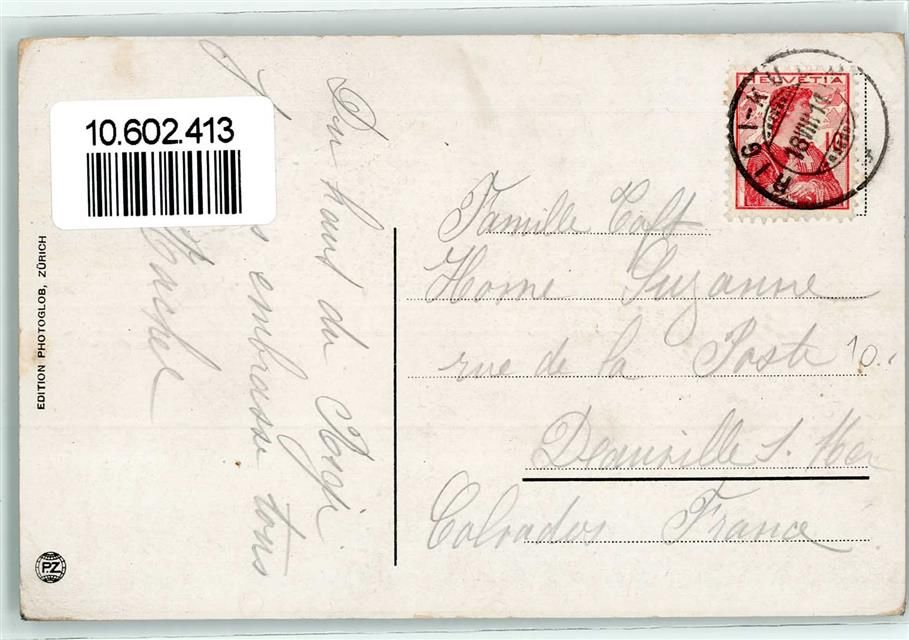 10.602.413
HELVETIA
10
RIGI-KU
18 VIII 1
EDITION PHOTOGLOB, ZÜRICH
PZ
Du haut du Rigi
embrasse tous
Famille
Home Suzanne
rue de la Poste 10.
Deauville s. Mer
Calvados France